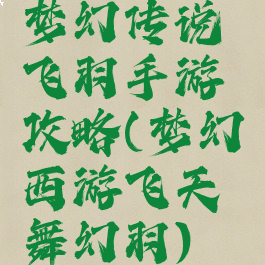 梦幻传说
飞羽手游
攻略(梦幻
西游飞天
舞幻羽)